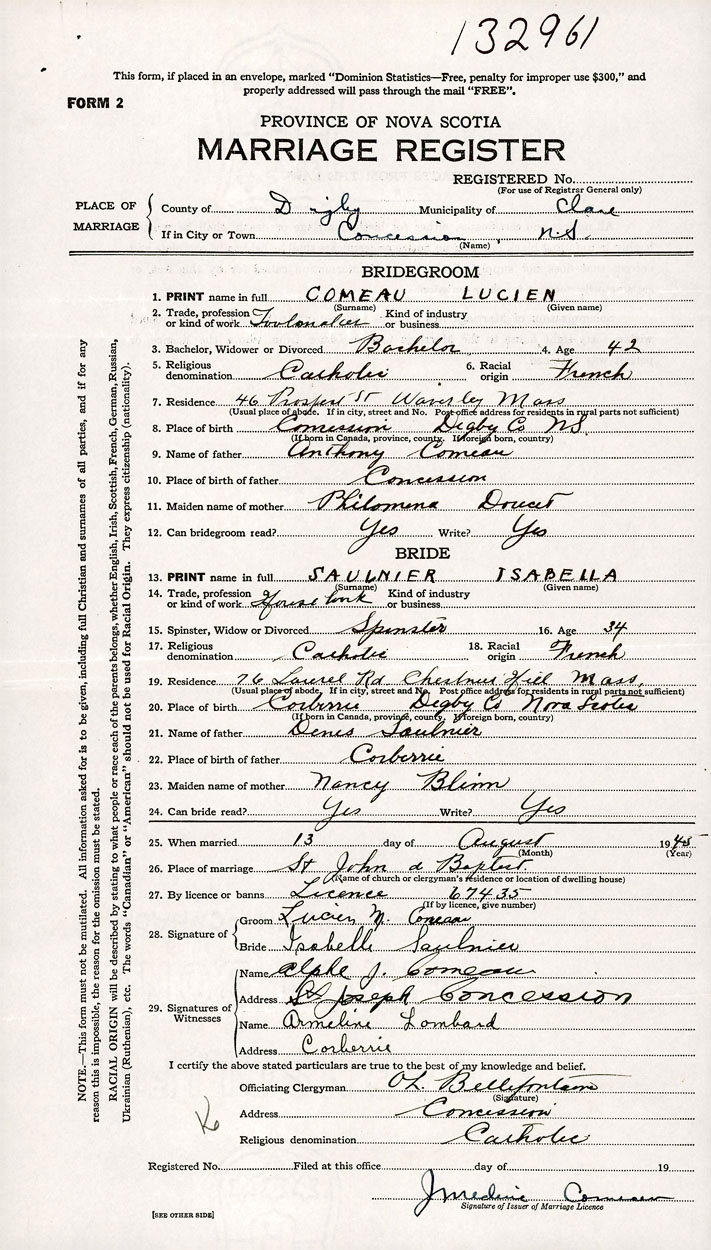 132961
This form, if placed in an envelope, marked “Dominion Statistics—Free, penalty for improper use $300,” and
properly addressed will pass through the mail “FREE”.
FORM 2
PROVINCE OF NOVA SCOTIA
MARRIAGE REGISTER
REGISTERED No.
(For use of Registrar General only)
PLACE OF MARRIAGE
County of Digby Municipality of Clare
If in City or Town Concession N.S.
(Name)
BRIDEGROOM
1. PRINT name in full COMEAU LUCIEN
(Surname) (Given name)
2. Trade, profession or kind of work Toolmaker Kind of industry or business
3. Bachelor, Widower or Divorced Bachelor 4. Age 42
5. Religious denomination Catholic 6. Racial origin French
7. Residence 46 Prospect St Waverley Mass
(Usual place of abode. If in city, street and No. Post office address for residents in rural parts not sufficient)
8. Place of birth Concession Digby Co NS
(If born in Canada, province, county. If foreign born, country)
9. Name of father Anthony Comeau
10. Place of birth of father Concession
11. Maiden name of mother Philomena Doucet
12. Can bridegroom read? Yes Write? Yes
BRIDE
13. PRINT name in full SAULNIER ISABELLA
(Surname) (Given name)
14. Trade, profession or kind of work House work Kind of industry or business
15. Spinster, Widow or Divorced Spinster 16. Age 34
17. Religious denomination Catholic 18. Racial origin French
19. Residence 76 Laurel Rd Chestnut Hill Mass,
(Usual place of abode. If in city, street and No. Post office address for residents in rural parts not sufficient)
20. Place of birth Corberrie Digby Co Nova Scotia
(If born in Canada, province, county. If foreign born, country)
21. Name of father Denis Saulnier
22. Place of birth of father Corberrie
23. Maiden name of mother Nancy Blinn
24. Can bride read? Yes Write? Yes
25. When married 13 day of August 1945
(Month) (Year)
26. Place of marriage St John d Baptist
(Name of church or clergyman's residence or location of dwelling house)
27. By licence or banns Licence 67435
(If by licence, give number)
28. Signature of
Groom Lucien M. Comeau
Bride Isabelle Saulnier
29. Signatures of Witnesses
Name Alphe J. Comeau
Address St Joseph Concession
Name Armeline Lombard
Address Corberrie
I certify the above stated particulars are true to the best of my knowledge and belief.
Officiating Clergyman Bellefontaine
(Signature)
Address Concession
Religious denomination Catholic
Registered No. Filed at this office day of 19
Comeau
Signature of Issuer of Marriage Licence
[SEE OTHER SIDE]
NOTE.—This form must not be mutilated. All information asked for is to be given, including full Christian and surnames of all parties, and if for any
reason this is impossible, the reason for the omission must be stated.
RACIAL ORIGIN will be described by stating to what people or race each of the parents belongs, whether English, Irish, Scottish, French, German, Russian,
Ukrainian (Ruthenian), etc. The words “Canadian” or “American” should not be used for Racial Origin. They express citizenship (nationality).